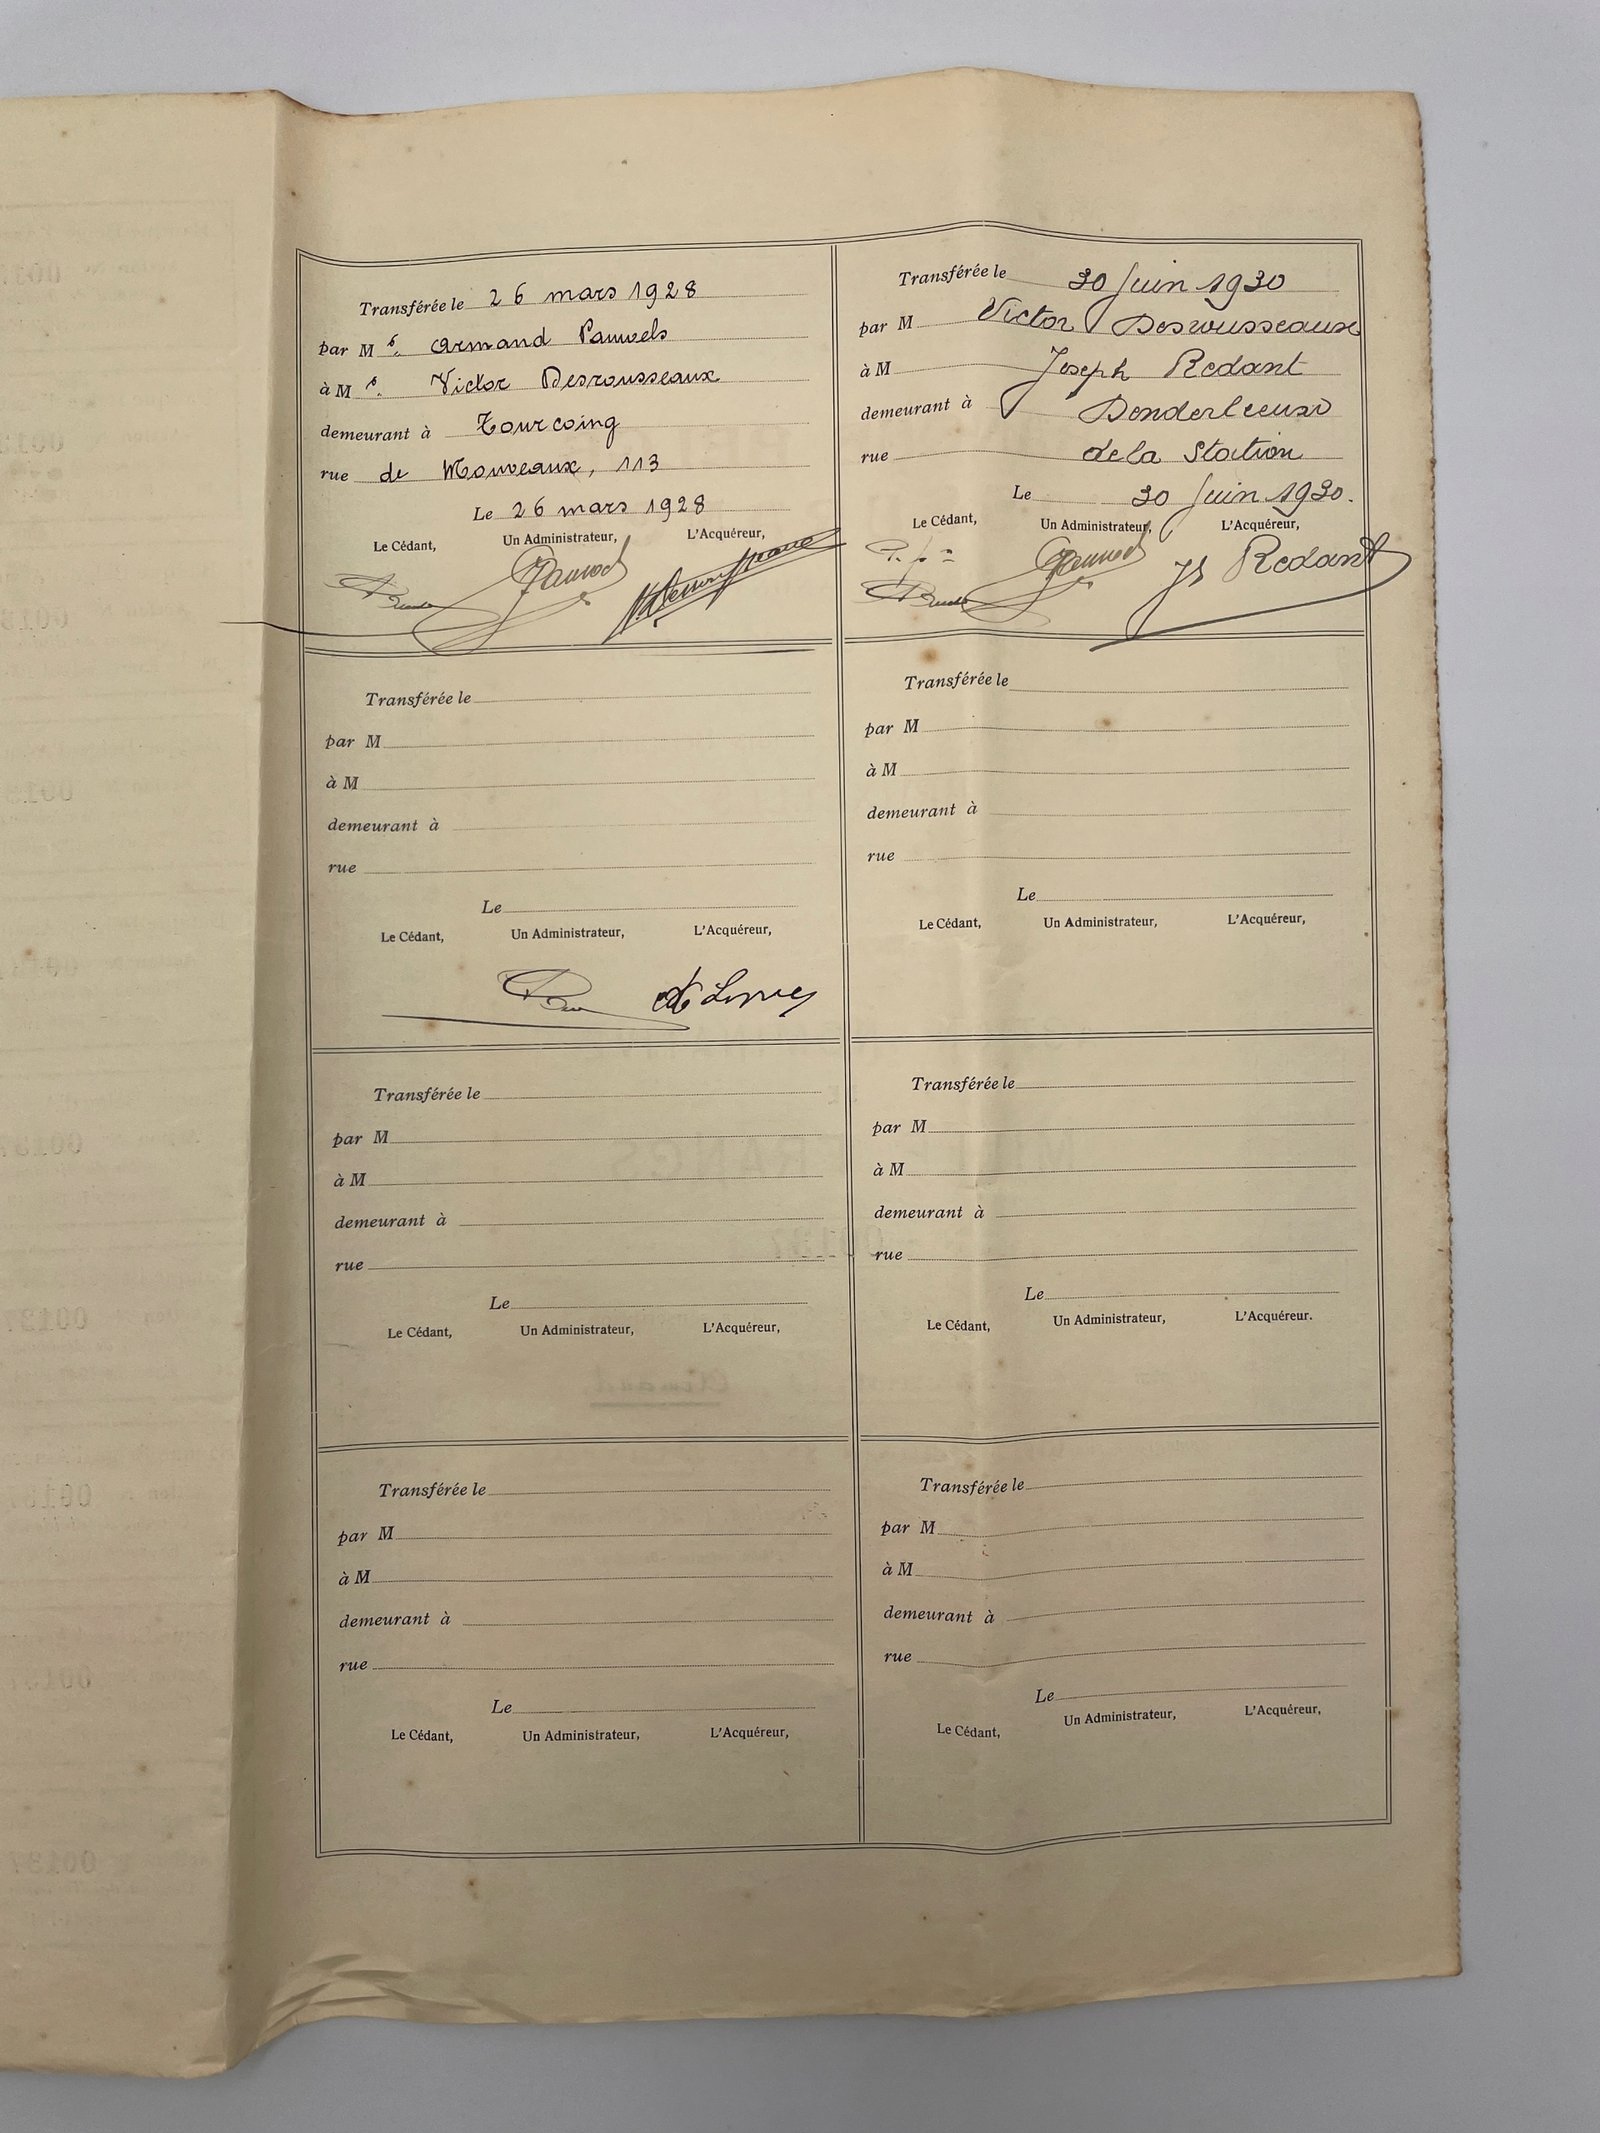 Transférée le 26 mars 1928
par Mr. Armand Pauwels
à Mr. Victor Desrousseaux
demeurant à Tourcoing
rue de Mouveaux, 113
Le 26 mars 1928
Le Cédant, Un Administrateur, L'Acquéreur,
Transférée le 30 Juin 1930
par M Victor Desrousseaux
à M Joseph Redant
demeurant à Denderleeuw
rue de la Station
Le 30 Juin 1930.
Le Cédant, Un Administrateur, L'Acquéreur,
Js Redant
Transférée le
par M
à M
demeurant à
rue
Le
Le Cédant, Un Administrateur, L'Acquéreur,
Transférée le
par M
à M
demeurant à
rue
Le
Le Cédant, Un Administrateur, L'Acquéreur,
Transférée le
par M
à M
demeurant à
rue
Le
Le Cédant, Un Administrateur, L'Acquéreur,
Transférée le
par M
à M
demeurant à
rue
Le
Le Cédant, Un Administrateur, L'Acquéreur.
Transférée le
par M
à M
demeurant à
rue
Le
Le Cédant, Un Administrateur, L'Acquéreur,
Transférée le
par M
à M
demeurant à
rue
Le
Le Cédant, Un Administrateur, L'Acquéreur,